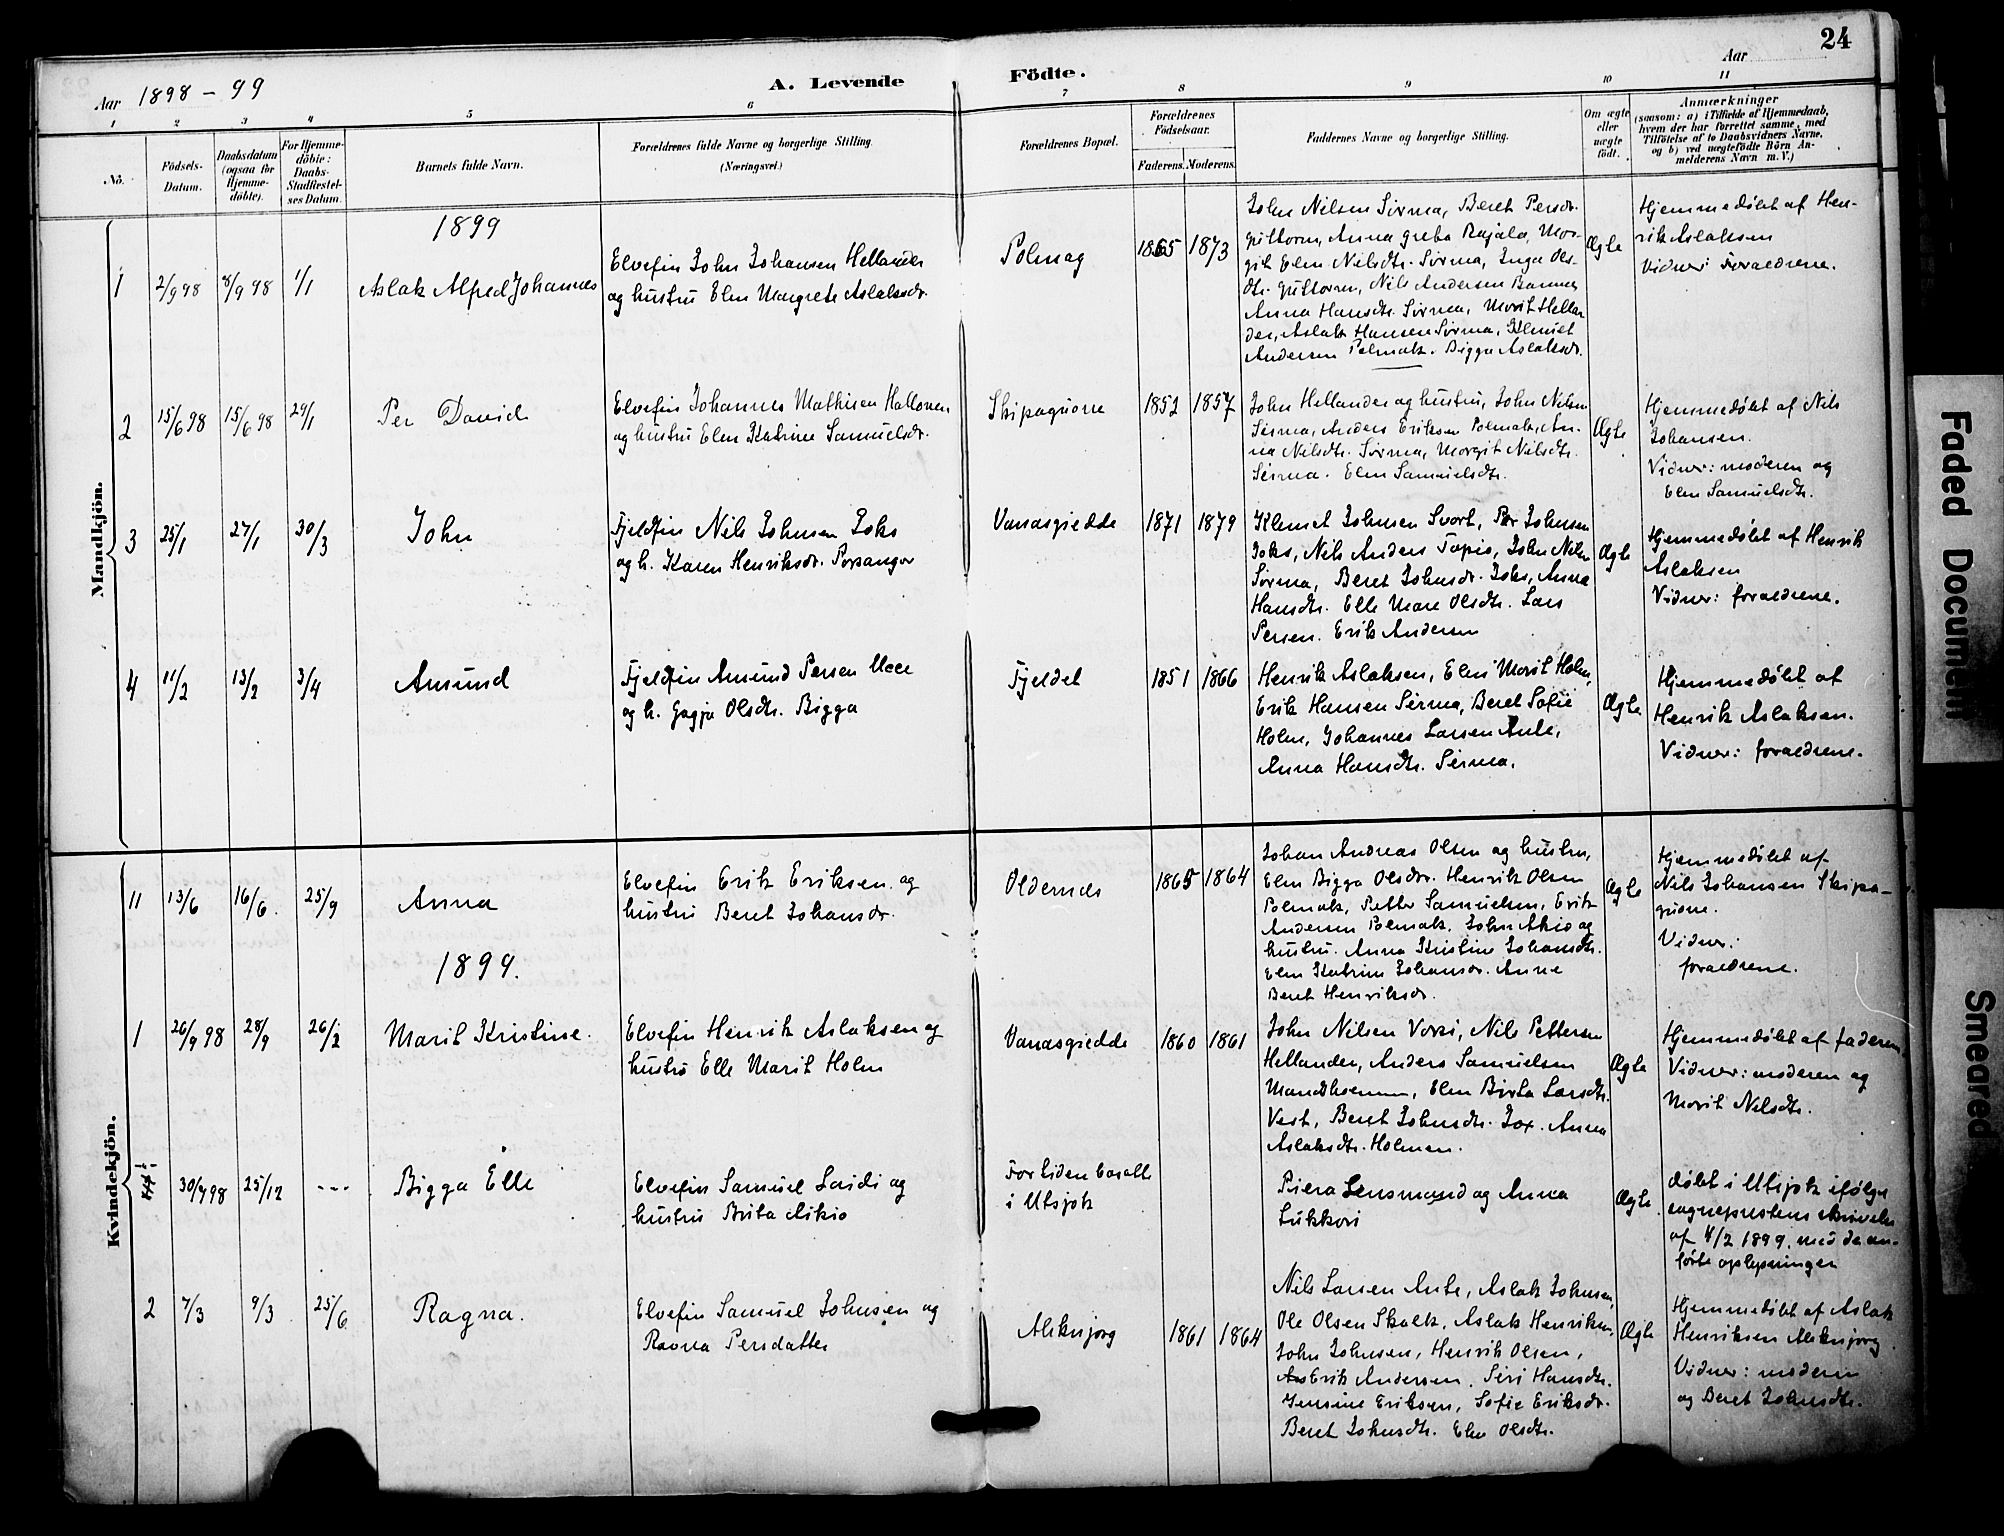 24
Aar 1898 - 99
A. Levende Födte.
Aar
1 2 3 4 5 6 7 8 9 10 11
No.
Födsels-Datum.
Daabsdatum (ogsaa for Hjemme-döbte).
For Hjemme-döbte: Daabs-Stadfæstel-ses Datum.
Barnets fulde Navn.
Forældrenes fulde Navne og borgerlige Stilling.
(Næringsvei.)
Forældrenes Bopæl.
Forældrenes Födselsaar.
Faderens. Moderens.
Faddernes Navne og borgerlige Stilling.
Om ægte eller uægte födt.
Anmærkninger
(saasom: a) i Tilfælde af Hjemmedaab, hvem der har forrettet samme, med Tilföielse af to Daabsvidners Navne, og b) ved uægtefödte Börn An-melderens Navn m. V.)
Mandkjön.
1899
1 2/9 98 8/9 98 1/1 Aslak Alfred Johannes
Elvefin John Johansen Hellander
og hustru Elen Margrete Aslaksdr.
Polmag 1865 1873
John Nilsen Sirma, Beret Persdr.
Guttorm, Anna Greta Rajala, Mar-
git Elen Nilsdtr. Sirma, Inga Ols-
dtr. Guttorm, Nils Andersen
Anna Hansdtr. Sirma, Marit Hellan-
der, Aslak Hansen Sirma, Klemet
Andersen Polmak. Bigga Aslaksdr.
Ægte
Hjemmedøbt af Hen-
rik Aslaksen
Vidner: Foraeldrene.
2 15/6 98 15/6 98 29/1 Per David
Elvefin Johannes Mathisen Halonen
og hustru Elen Katrine Samuelsdr.
Skipaguorre 1852 1857
John Hellander og hustru, John Nilsen
Sirma, Anders Eriksen Polmak, An-
na Nilsdtr. Sirma, Margit Nilsdtr.
Sirma. Elen Samuelsdtr.
Ægte
Hjemmedøbt af Nils
Johansen.
Vidner: moderen og
Elen Samuelsdtr.
3 25/1 27/1 30/3 John
Fjeldfin Nils Johnsen Joks
og h. Karen Henriksdr. Porsanger
Vanasgiedde 1871 1879
Klemet Johnsen Svart, Per Johnsen
Joks, Nils Anders Tapio, John Nilsen
Sirma, Beret Johnsdr. Joks, Anna
Hansdtr. Elle Mare Olsdtr. Lars
Persen. Erik Andersen
Ægte
Hjemmedøbt af Henrik
Aslaksen
Vidner: foraeldrene.
4 11/2 13/2 3/4 Amund
Fjeldfin Amund Persen
og h. Gagja Olsdtr. Bigga
Fjeldet 1851 1866
Henrik Aslaksen, Elen Marit Holm,
Erik Hansen Sirma, Beret Sofie
Holm, Johannes Larsen Ante,
Anna Hansdtr. Sirma.
Ægte
Hjemmedøbt af
Henrik Aslaksen.
Vidner: foraeldrene.
Kvindekjön.
11 13/6 16/6. 25/9 Anna
Elvefin Erik Eriksen og
hustru Beret Johansdr.
Oldernes 1865 1864
Johan Andreas Olsen og hustru,
Elen Bigga Olsdr. Henrik Olsen
Polmak, Petter Samuelsen, Erik
Andersen Polmak. John Akio og
hustru. Anna Kristine Johansdtr.
Elen Katrine Johansdr. Anne
Beret Henriksdr.
Ægte
Hjemmedøbt af
Nils Johansen Skipa-
guorre.
Vidner:
foraeldrene.
1899.
1 26/9 98 28/9 26/2 Marit Kristine.
Elvefin Henrik Aslaksen og
hustru Elle Marit Holm
Vanasgiedde 1860 1861
John Nilsen Varsi, Nils Pettersen
Hellander, Anders Samuelsen
Elen Birta Larsdtr.
Vest, Beret Johnsdtr. Jox. Anna
Aslaksdtr. Holmen.
Ægte
Hjemmedøbt af faderen
Vidner: moderen og
Marit Nilsdtr.
30/9 98 25/12 --- Bigga Elle
Elvefin Samuel Laidi og
hustru Brita Aikio
For tiden bosatte
i Utsjok
Piera Lensmand og Anna
Lukkari
Ægte.
døbt i Utsjok ifølge
sognepræstens skrivelse
af 4/2 1899, med de an-
førte oplysninger
2 7/3 9/3 25/6 Ragna.
Elvefin Samuel Johnsen og
Ravna Persdatter
Aleknjarg 1861 1864
Nils Larsen Ante, Aslak Johnsen,
Ole Olsen Skalk, Aslak Henriksen,
John Johnsen, Henrik Olsen,
Erik Andersen. Siri Hansdtr.
Jensine Eriksen, Sofie Eriksdr.
Beret Johnsdtr. Elen Olsdtr.
Ægte
Hjemmedøbt af Aslak
Henriksen Aleknjarg
Vidner: moderen
og Beret Johnsdtr.
Faded Document
Smeared